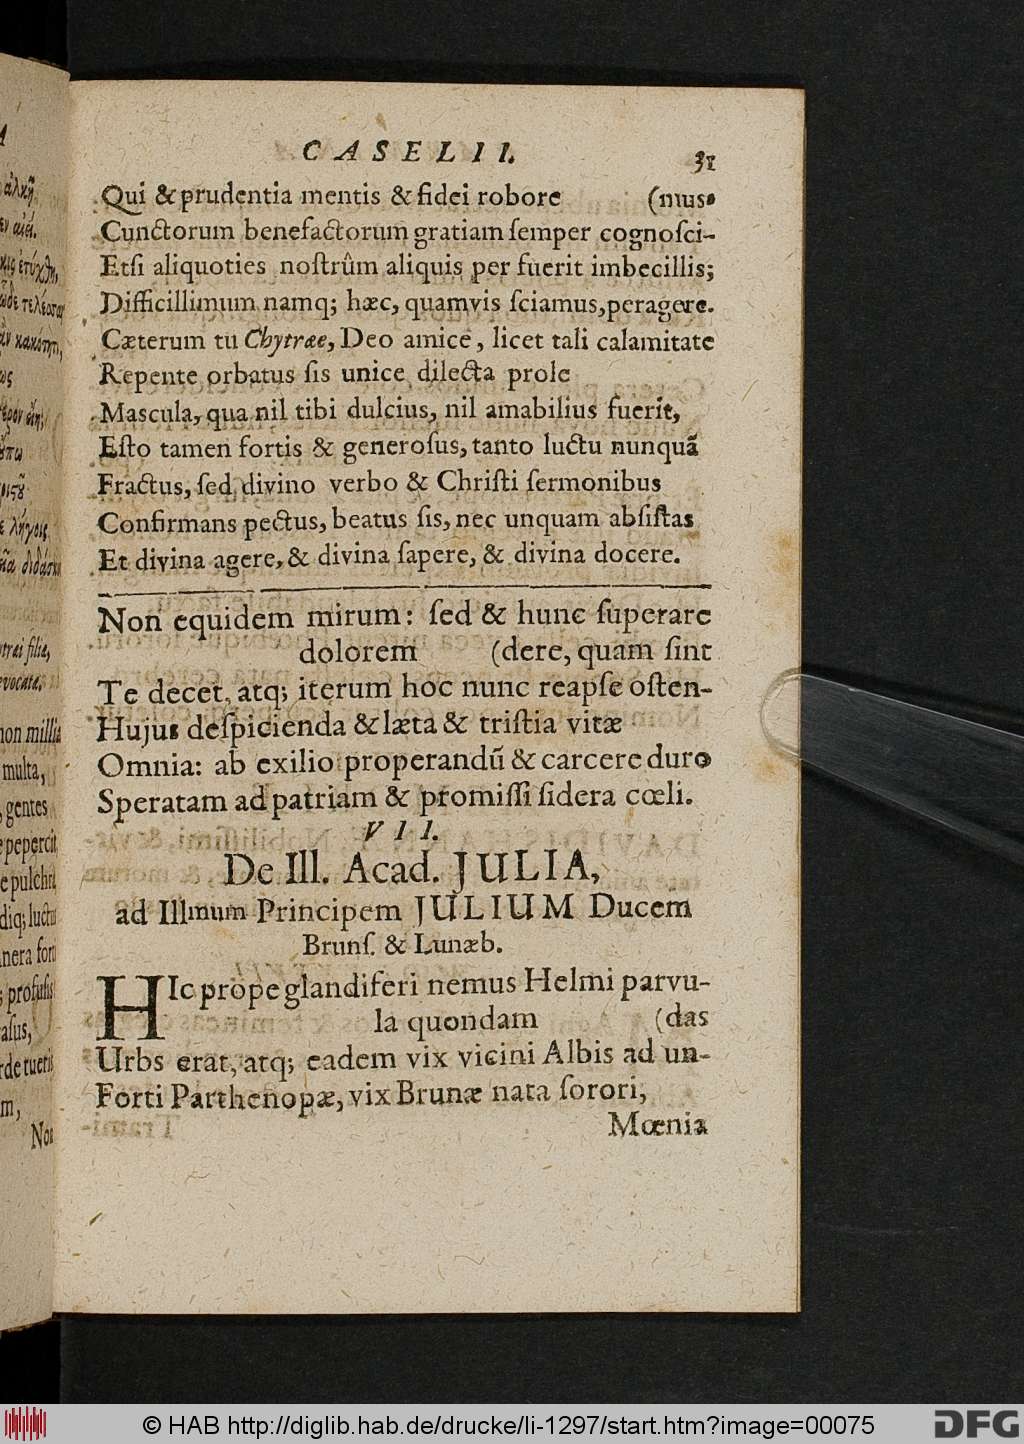 CASELII. 31
Qui & prudentia mentis & fidei robore (mus.
Cunctorum benefactorum gratiam ſemper cognoſci-
Etſi aliquoties noſtrûm aliquis per fuerit imbecillis;
Difficillimum namq; hæc, quamvis ſciamus, peragere.
Cæterum tu Chytræe, Deo amice, licet tali calamitate
Repente orbatus ſis unice dilecta prole
Mascula, qua nil tibi dulcius, nil amabilius fuerit,
Eſto tamen fortis & generoſus, tanto luctu nunquã
Fractus, ſed divino verbo & Chriſti ſermonibus
Confirmans pectus, beatus ſis, nec unquam abſiſtas
Et divina agere, & divina ſapere, & divina docere.
Non equidem mirum: ſed & hunc ſuperare
dolorem (dere, quam ſint
Te decet, atq; iterum hoc nunc reapſe oſten-
Hujus deſpicienda & læta & triſtia vitæ
Omnia: ab exilio properandũ & carcere duro
Speratam ad patriam & promiſſi ſidera cœli.
VII.
De Ill. Acad. JULIA,
ad Illmum Principem JULIUM Ducem
Brunſ. & Lunæb.
HIc prope glandiferi nemus Helmi parvu-
la quondam (das
Urbs erat, atq; eadem vix vicini Albis ad un-
Forti Parthenopæ, vix Brunæ nata ſorori,
Mœnia
ἀλκῇ
trai filia,
evocata.
non millia
multa,
gentes
pepercit
e pulchra
diq; luctu
m,
Non
© HAB http://diglib.hab.de/drucke/li-1297/start.htm?image=00075
DFG